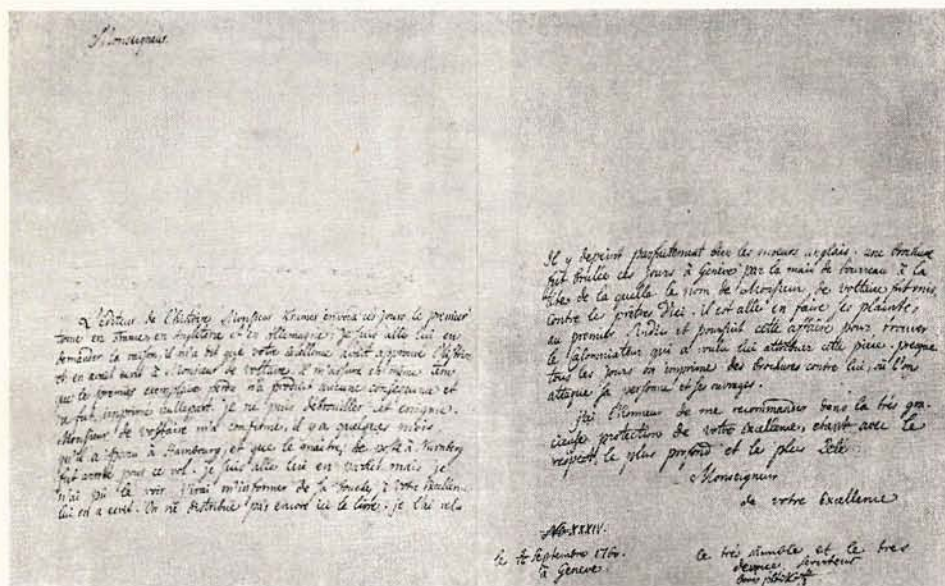 Monseigneur.
L'éditeur de l'histoire Monsieur Kramer envoia ces jours le premier
tome en France, en Angleterre et en Allemagne. Je suis allé lui en
demander la raison, il m'a dit que votre excellence avait approuvé l'édition
et en avait écrit à Monsieur de voltaire. il m'assura en même tems
que le premier exemplaire perdu n'a produit aucune consequence et
ne fut imprimé nullepart. je ne puis debrouiller cet enigme.
Monsieur de voltaire m'a confirmé, il y a quelques mois
qu'il a paru à Hambourg, et que le maitre de poste à Nurnberg
fut arreté pour ce vol. je suis allé lui en parler mais je
n'ai pû le voir. j'irai m'informer de la bouche, si votre excellence
lui en a écrit. On ne distribue pas encore ici le livre. je l'ai relu
Il y depeint parfaitement bien les moeurs anglais. une brochure
fut brulée ces jours à Genève par la main de bourreau à la
tête de la quelle le nom de Monsieur de voltaire fut mis
contre les pretres Dieu. il est allé en faire ses plaintes
au premier Sindic et poursuit cette affaire pour trouver
le calomniateur qui a voulu lui attribuer cette piece. presque
tous les jours on imprime des brochures contre lui, où l'on
attaque sa personne et ses ouvrages.
j'ai l'honneur de me recommander dans la très gra-
cieuse protection de votre excellence, etant avec le
respect le plus profond et le plus Zelé
Monseigneur
de votre Excellence
No XXXIV.
le Septembre 1760.
à Geneve.
le très humble et le très
serviteur